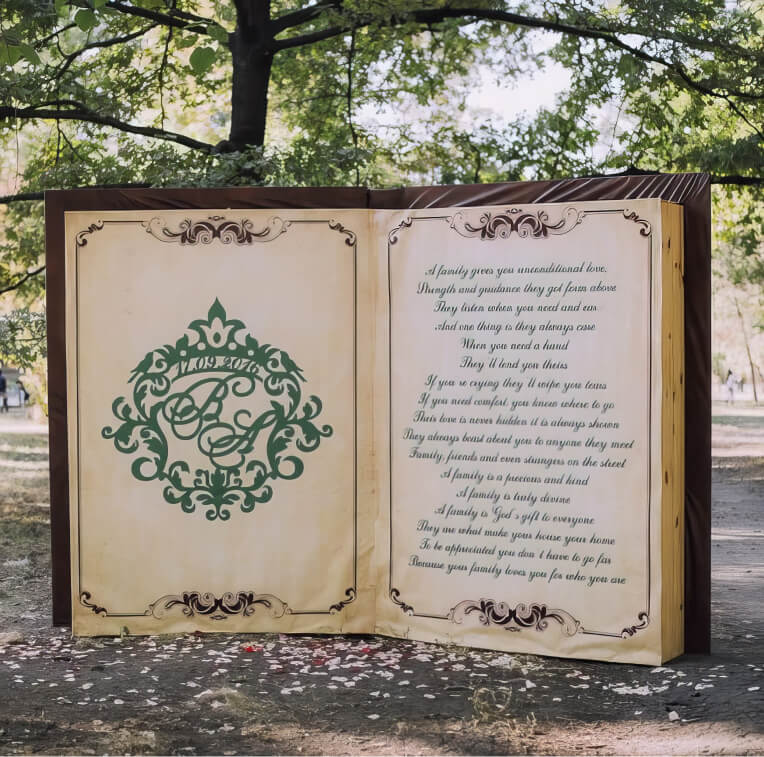 17.09.2016
B A
A family gives you unconditional love,
Strength and guidance they got from above
They listen when you need and ear
And one thing is they always care
When you need a hand
They'll lend you theirs
If you're crying they'll wipe you tears
If you need comfort, you know where to go
Their love is never hidden it is always shown
They always boast about you to anyone they meet
Family, friends and even strangers on the street
A family is a precious and kind
A family is truly divine
A family is God's gift to everyone
They are what make your house your home
To be appreciated you don't have to go far
Because your family loves you for who you are